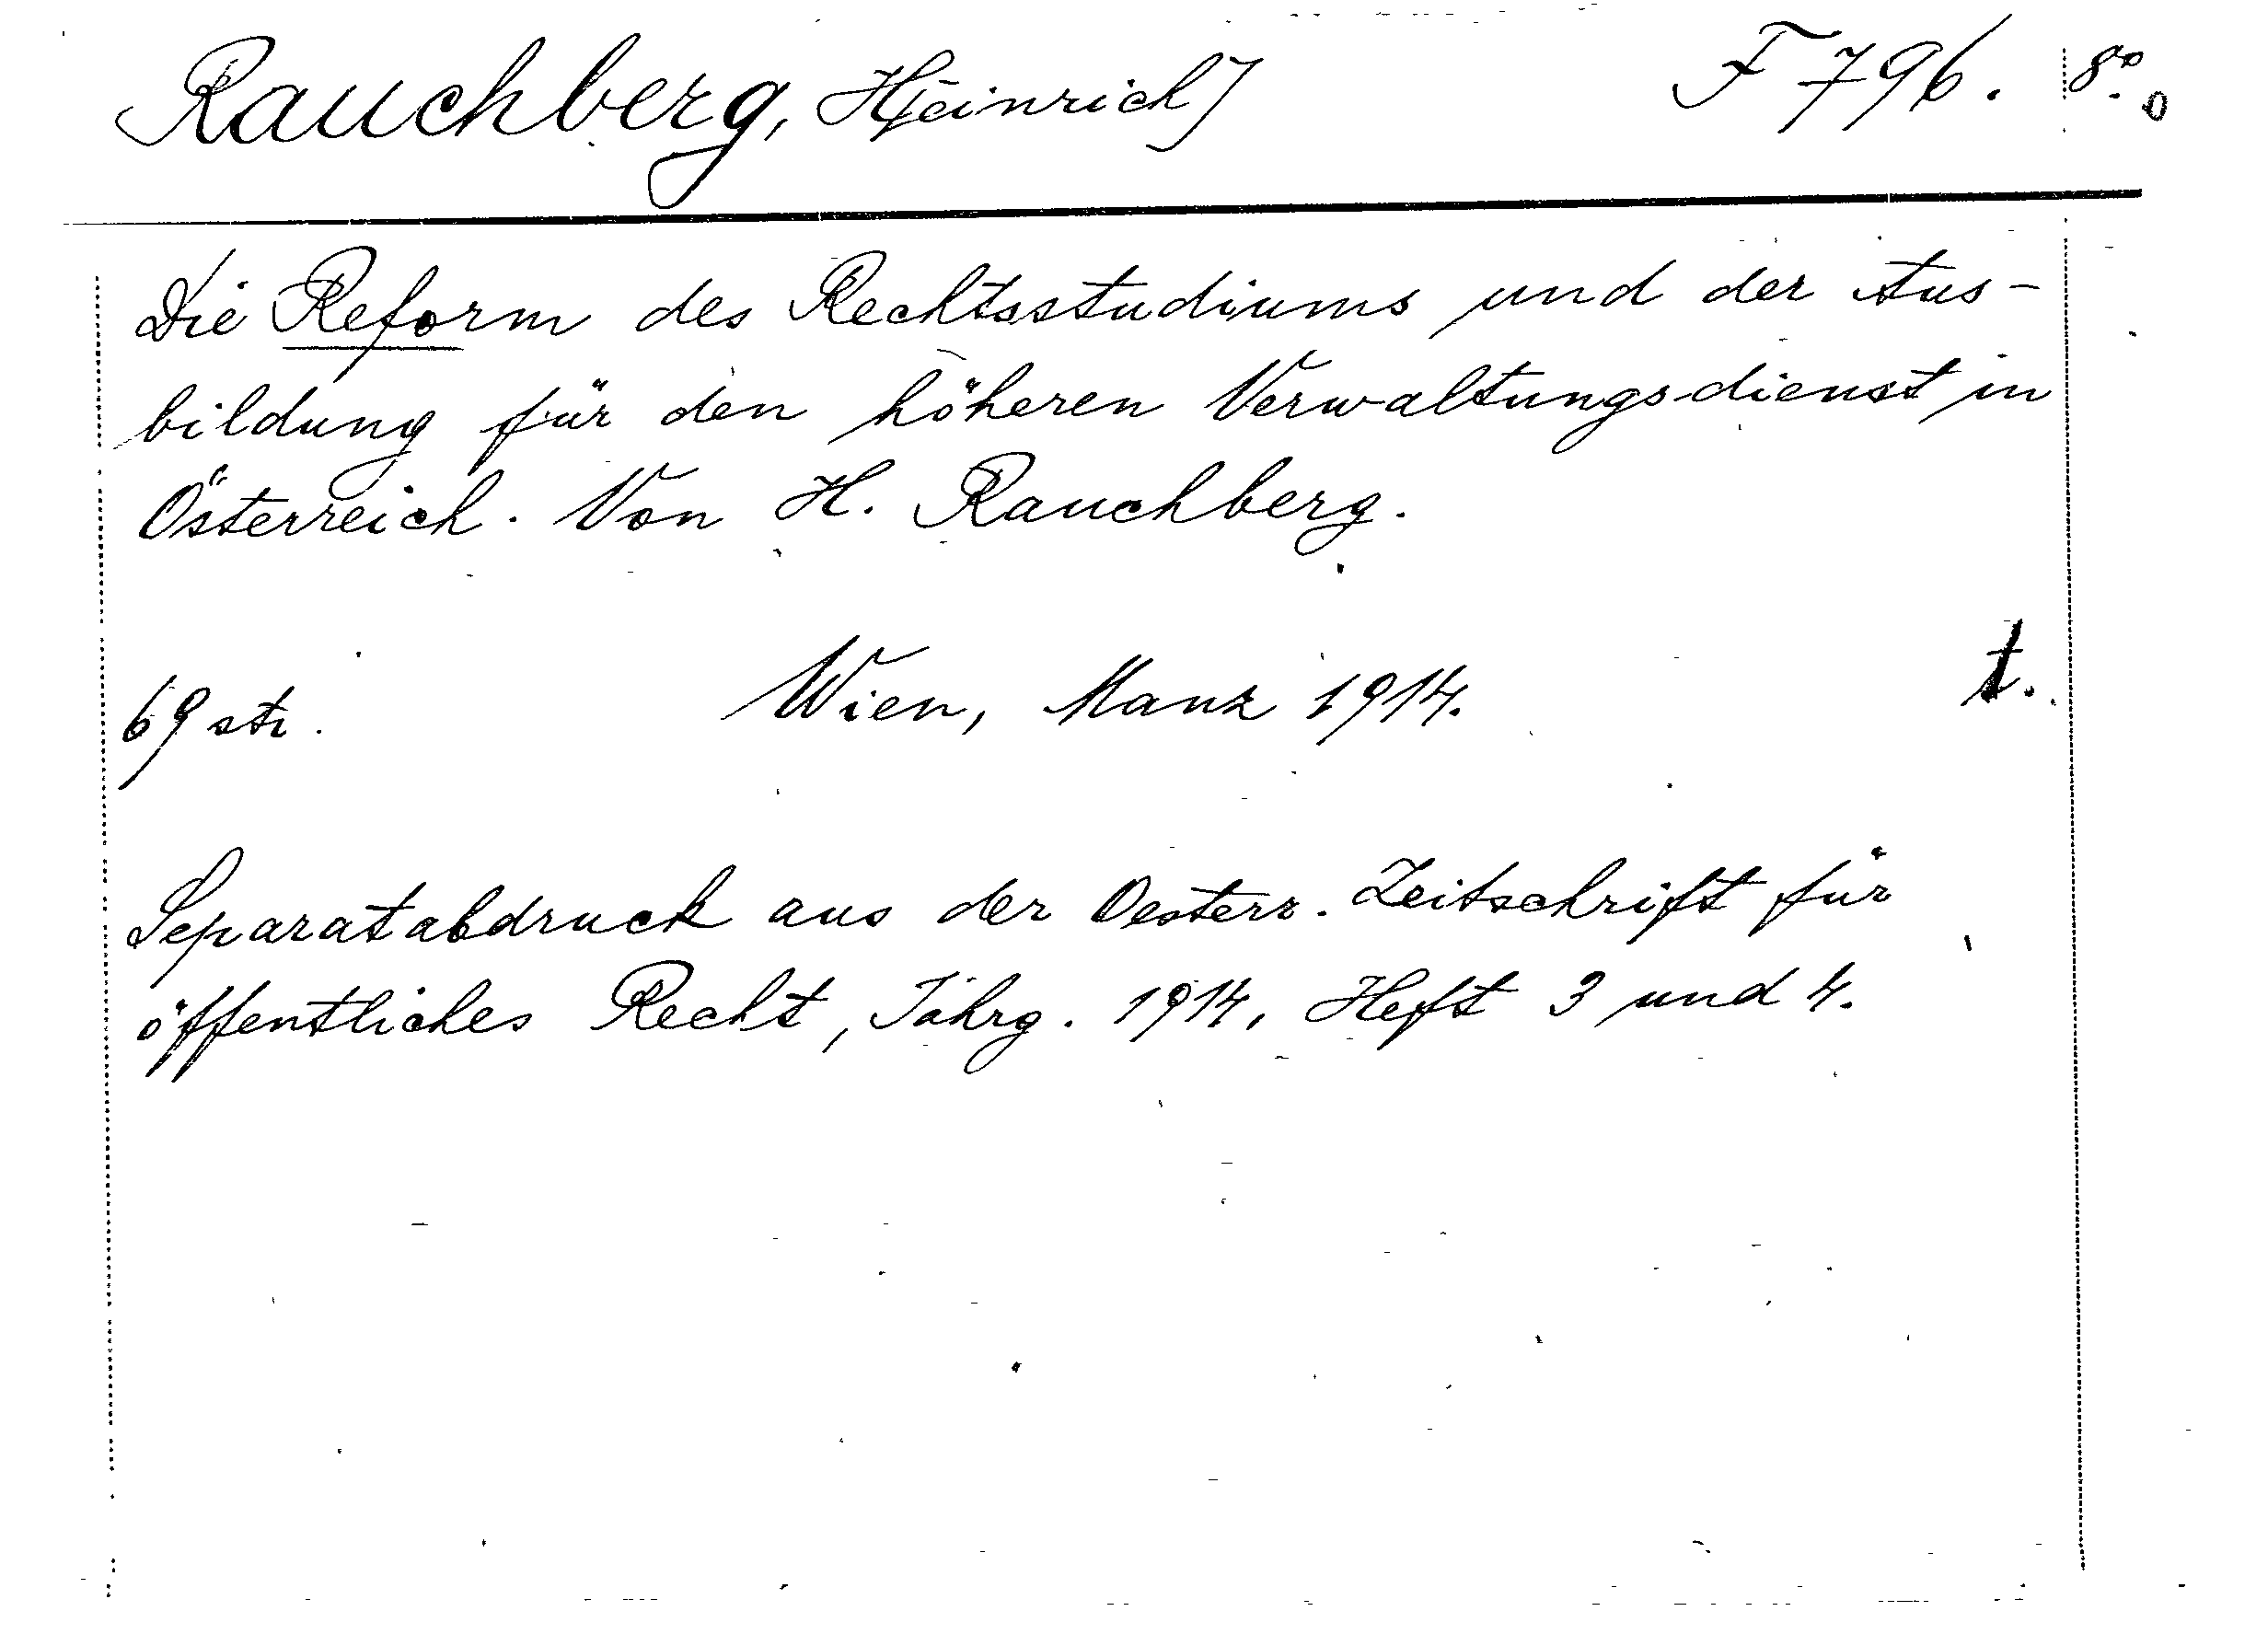 Rauchberg, H[einrich] F 796. 8°.
Die Reform des Rechtsstudiums und der Aus-
bildung für den höheren Verwaltungsdienst in
Österreich. Von H. Rauchberg.
69 str. Wien, Manz 1914. t.
Separatabdruck aus der Oesterr. Zeitschrift für
öffentliches Recht, Jahrg. 1914, Heft 3 und 4.